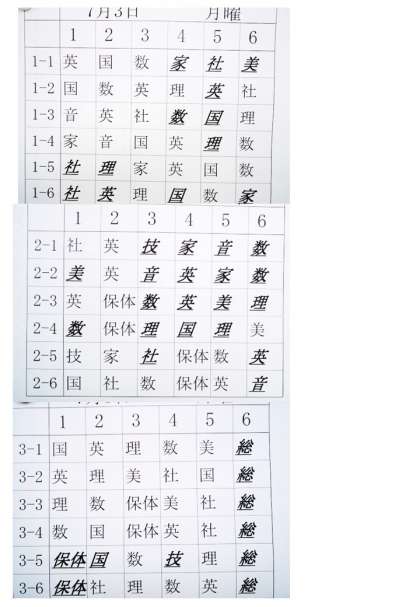 7月3日 月曜
1 2 3 4 5 6
1-1 英 国 数 家 社 美
1-2 国 数 英 理 英 社
1-3 音 英 社 数 国 理
1-4 家 音 国 英 理 数
1-5 社 理 家 英 国 数
1-6 社 英 理 国 数 家
1 2 3 4 5 6
2-1 社 英 技 家 音 数
2-2 美 英 音 英 家 数
2-3 英 保体 数 英 美 理
2-4 数 保体 理 国 理 美
2-5 技 家 社 保体 数 英
2-6 国 社 数 保体 英 音
1 2 3 4 5 6
3-1 国 英 理 数 美 総
3-2 英 理 美 社 国 総
3-3 理 数 保体 美 社 総
3-4 数 国 保体 英 社 総
3-5 保体 国 数 技 理 総
3-6 保体 社 理 数 英 総